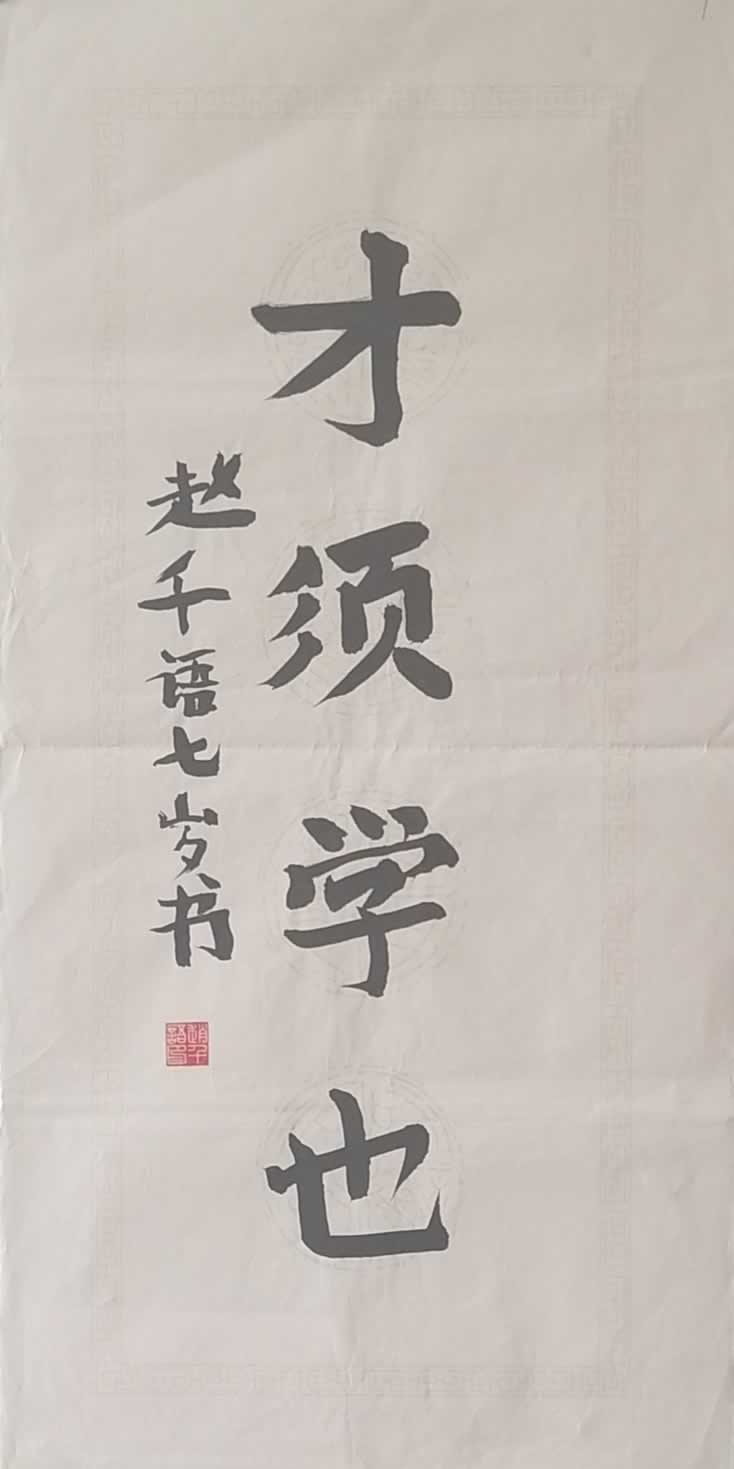 才须学也
赵千语七岁书